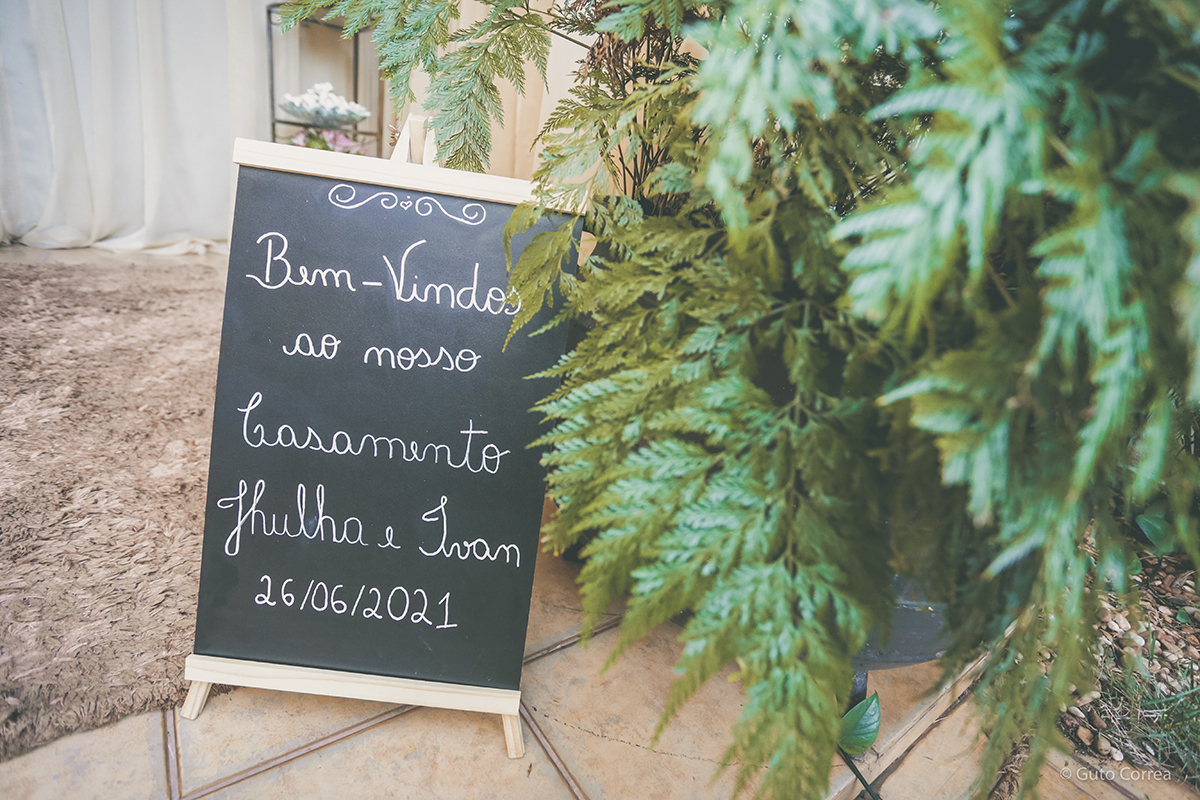 Bem-Vindos
ao nosso
Casamento
Jhulha e Ivan
26/06/2021
© Guto Correa